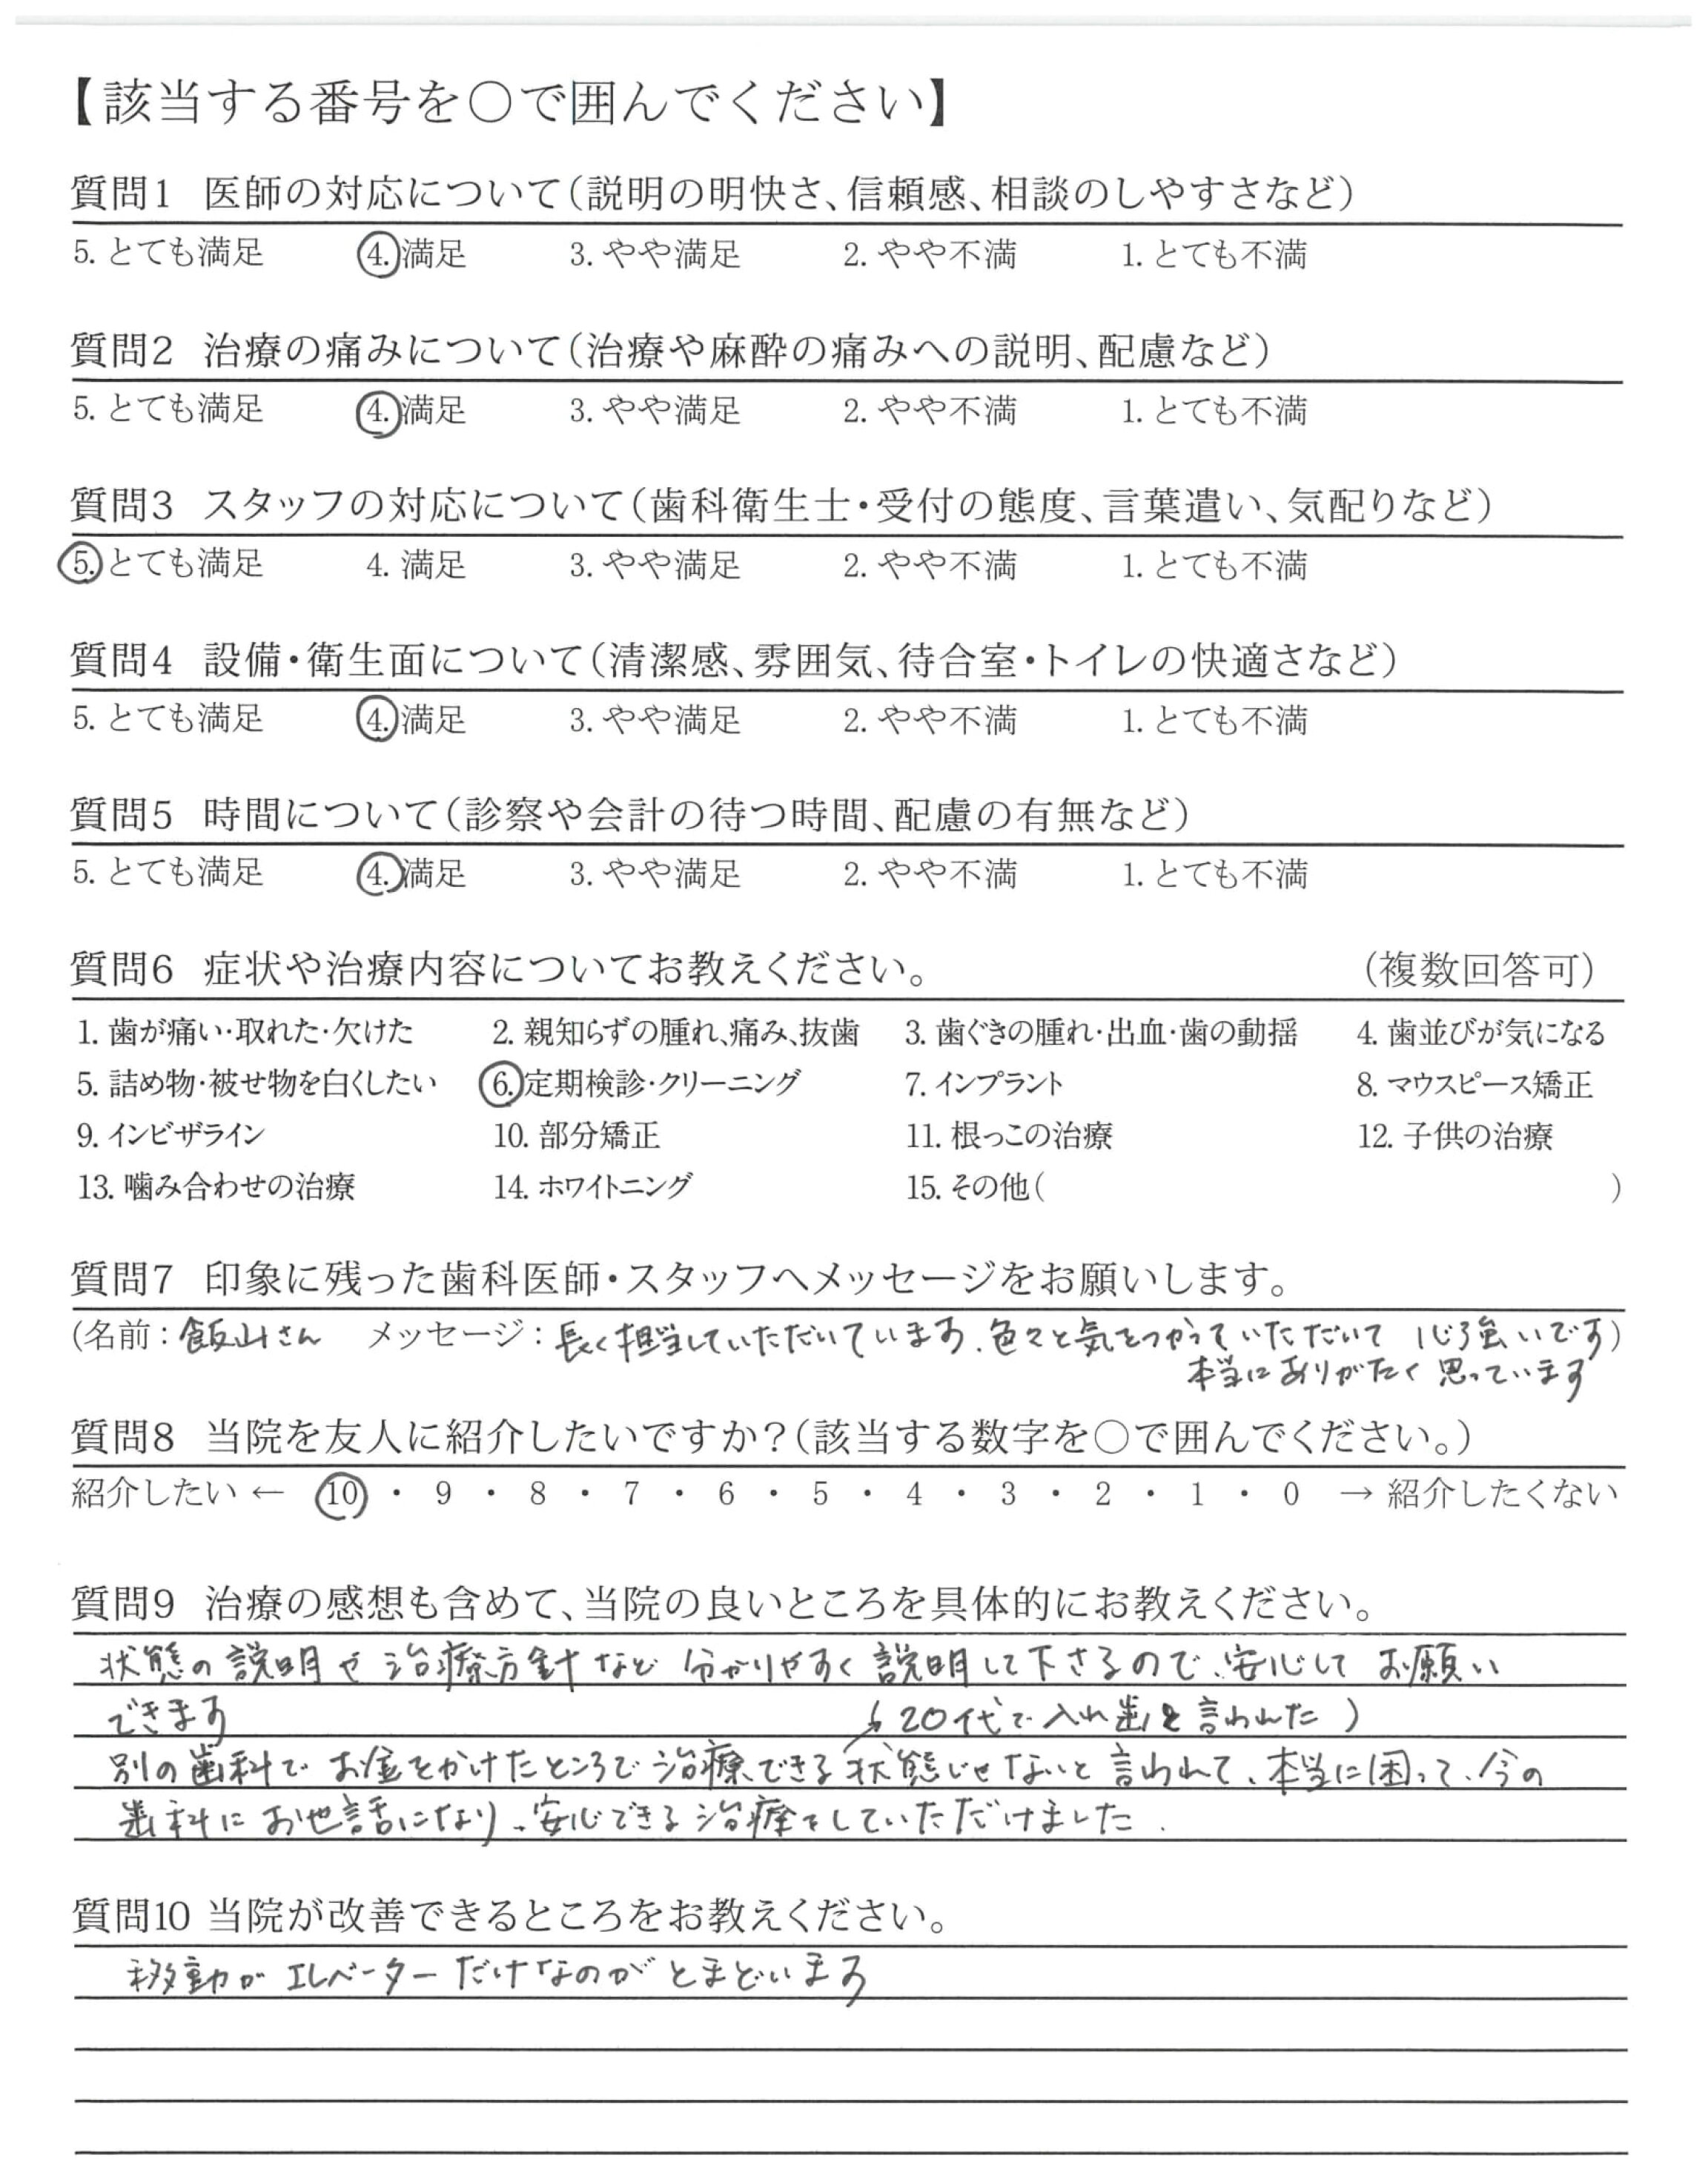 【該当する番号を○で囲んでください】
質問1 医師の対応について(説明の明快さ、信頼感、相談のしやすさなど)
5. とても満足 4. 満足 3. やや満足 2. やや不満 1. とても不満
質問2 治療の痛みについて(治療や麻酔の痛みへの説明、配慮など)
5. とても満足 4. 満足 3. やや満足 2. やや不満 1. とても不満
質問3 スタッフの対応について(歯科衛生士・受付の態度、言葉遣い、気配りなど)
5. とても満足 4. 満足 3. やや満足 2. やや不満 1. とても不満
質問4 設備・衛生面について(清潔感、雰囲気、待合室・トイレの快適さなど)
5. とても満足 4. 満足 3. やや満足 2. やや不満 1. とても不満
質問5 時間について(診察や会計の待つ時間、配慮の有無など)
5. とても満足 4. 満足 3. やや満足 2. やや不満 1. とても不満
質問6 症状や治療内容についてお教えください。 (複数回答可)
1. 歯が痛い・取れた・欠けた 2. 親知らずの腫れ、痛み、抜歯 3. 歯ぐきの腫れ・出血・歯の動揺 4. 歯並びが気になる
5. 詰め物・被せ物を白くしたい 6. 定期検診・クリーニング 7. インプラント 8. マウスピース矯正
9. インビザライン 10. 部分矯正 11. 根っこの治療 12. 子供の治療
13. 噛み合わせの治療 14. ホワイトニング 15. その他( )
質問7 印象に残った歯科医師・スタッフへメッセージをお願いします。
(名前:飯山さん メッセージ:長く担当していただいています、色々と気をつかっていただいて 心強いです)
本当にありがたく思っています
質問8 当院を友人に紹介したいですか?(該当する数字を○で囲んでください。)
紹介したい ← 10 ・ 9 ・ 8 ・ 7 ・ 6 ・ 5 ・ 4 ・ 3 ・ 2 ・ 1 ・ 0 → 紹介したくない
質問9 治療の感想も含めて、当院の良いところを具体的にお教えください。
状態の説明や治療方針など 分かりやすく説明して下さるので、安心して お願い
できます
(20代で入れ歯と言われた)
別の歯科で お金をかけたところで治療できる状態じゃないと言われて、本当に困って、今の
歯科にお世話になり、安心できる治療をしていただけました.
質問10 当院が改善できるところをお教えください。
移動が エレベーターだけなのが とまどいます